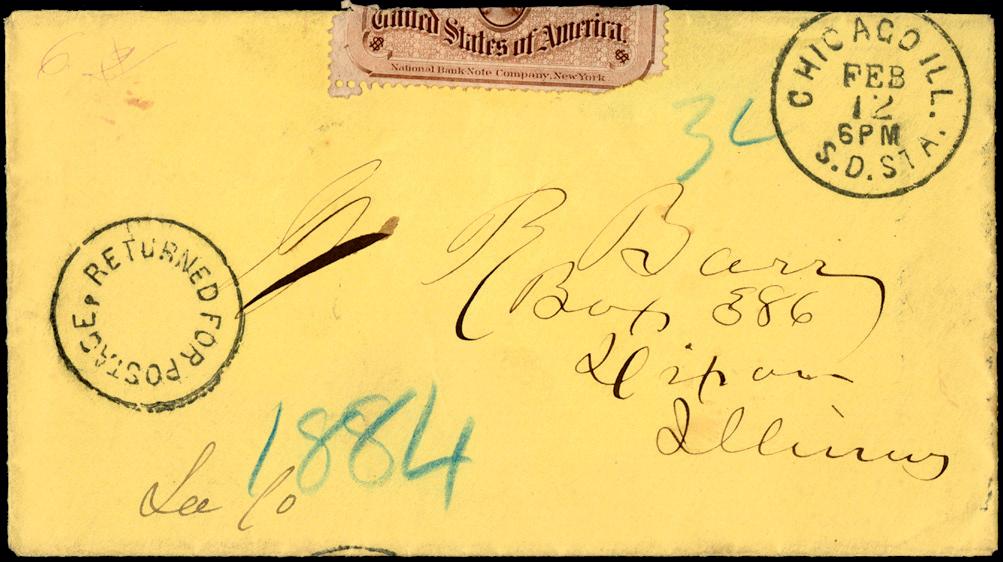 United States of America.
National Bank-Note Company, New York
CHICAGO ILL.
FEB
12
6PM
S.D. STA.
RETURNED FOR POSTAGE
R Barr
Box 386
Dixon
Illinois
1884
Lee Co